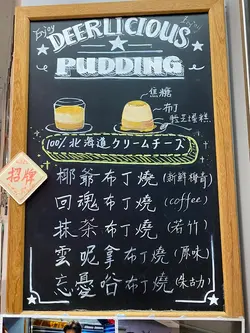 Enjoy
DEERLICIOUS
Enjoy
PUDDING
焦糖
布丁
100%北海道クリームチーズ
招牌
椰爺布丁燒(新鮮椰青)
回魂布丁燒(coffee)
抹茶布丁燒(若竹)
雲呢拿布丁燒(原味)
忘憂唂布丁燒(朱古力)